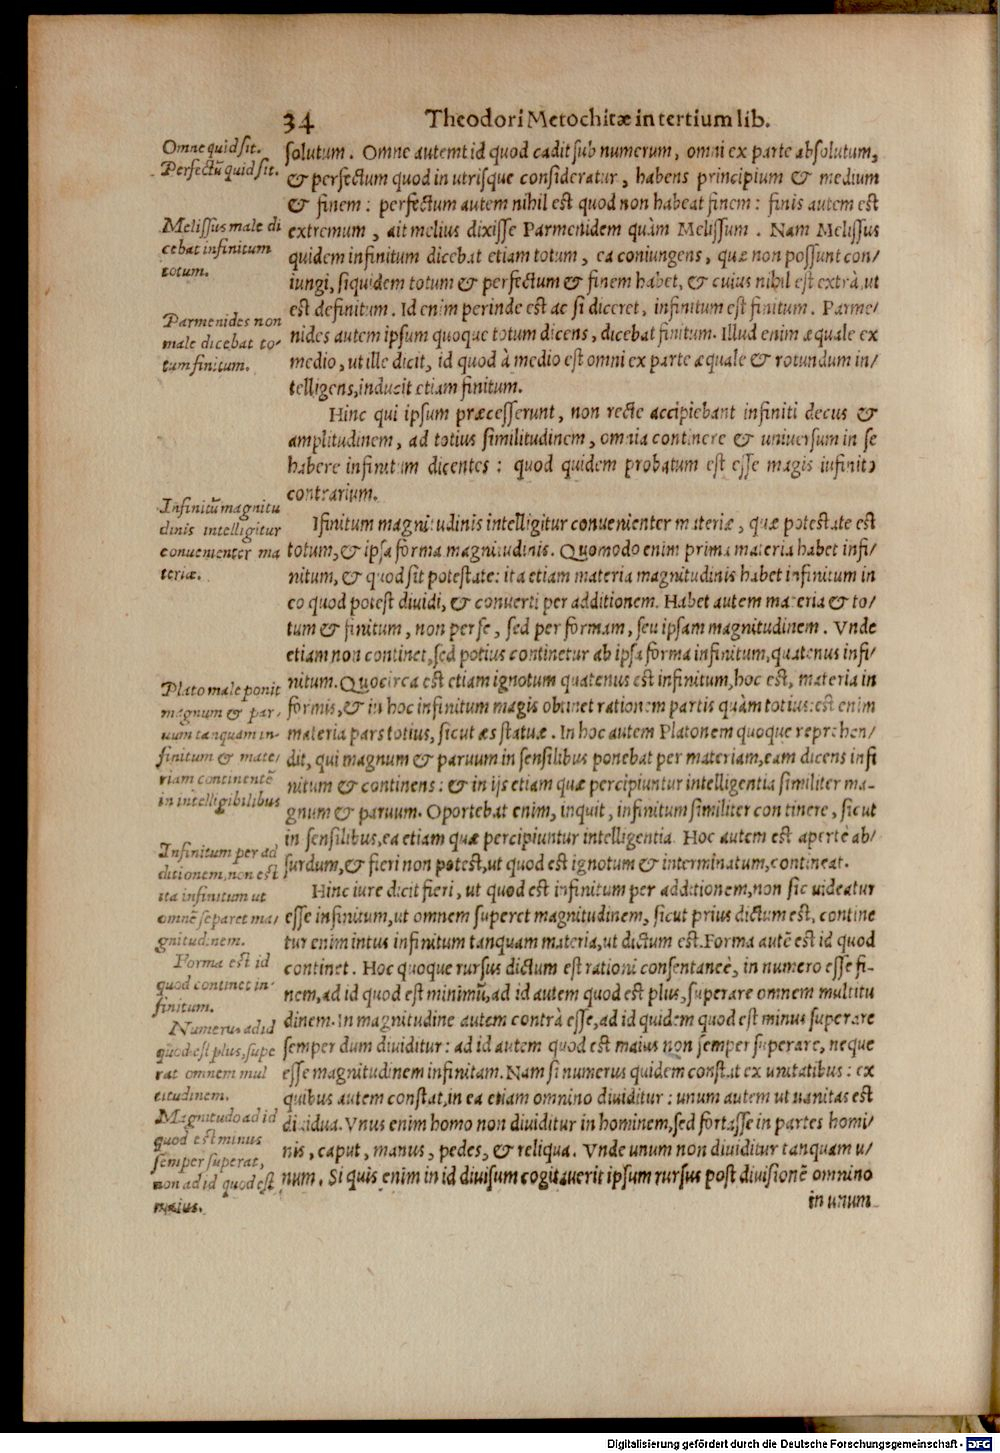 34 Theodori Metochitæ in tertium lib.
Omne quid sit.
Perfectũ quid sit.
Melissus male di
cebat infinitum
totum.
Parmenides non
male dicebat to-
tum finitum.
Infinitũ magnitu
dinis intelligitur
conuenienter ma
teriæ.
Plato male ponit
magnum & par/
uum tanquam in-
finitum & mate/
riam continentẽ
in intelligibilibus
Infinitum per ad
ditionem, non est
ita infinitum ut
omnẽ separet ma/
gnitudinem.
Forma est id
quod continet in-
finitum.
Numerus ad id
quod est plus, supe
rat omnem mul
titudinem.
Magnitudo ad id
quod est minus
semper superat,
non ad id quod est
maius.
solutum. Omne autem id quod cadit sub numerum, omni ex parte absolutum,
& perfectum quod in utrisque consideratur, habens principium & medium
& finem: perfectum autem nihil est quod non habeat finem: finis autem est
extremum, ait melius dixisse Parmenidem quàm Melissum. Nam Melissus
quidem infinitum dicebat etiam totum, ea coniungens, quæ non possunt con/
iungi, siquidem totum & perfectum & finem habet, & cuius nihil est extrà, ut
est definitum. Id enim perinde est ac si diceret, infinitum est finitum. Parme/
nides autem ipsum quoque totum dicens, dicebat finitum. Illud enim æquale ex
medio, ut ille dicit, id quod à medio est omni ex parte æquale & rotundum in/
telligens, inducit etiam finitum.
Hinc qui ipsum præcesserunt, non recte accipiebant infiniti decus &
amplitudinem, ad totius similitudinem, omnia continere & uniuersum in se
habere infinitum dicentes: quod quidem probatum est esse magis infinito
contrarium.
Ifinitum magnitudinis intelligitur conuenienter materiæ, quæ potestate est
totum, & ipsa forma magnitudinis. Quomodo enim prima materia habet infi/
nitum, & quod sit potestate: ita etiam materia magnitudinis habet infinitum in
eo quod potest diuidi, & conuerti per additionem. Habet autem materia & to/
tum & finitum, non per se, sed per formam, seu ipsam magnitudinem. Vnde
etiam non continet, sed potius continetur ab ipsa forma infinitum, quatenus infi/
nitum. Quocirca est etiam ignotum quatenus est infinitum, hoc est, materia in
formis, & in hoc infinitum magis obtinet rationem partis quàm totius: est enim
materia pars totius, sicut æs statuæ. In hoc autem Platonem quoque reprehen/
dit, qui magnum & paruum in sensilibus ponebat per materiam, eam dicens infi
nitum & continens: & in ijs etiam quæ percipiuntur intelligentia similiter ma-
gnum & paruum. Oportebat enim, inquit, infinitum similiter continere, sicut
in sensilibus, ea etiam quæ percipiuntur intelligentia. Hoc autem est apertè ab/
surdum, & fieri non potest, ut quod est ignotum & interminatum, contineat.
Hinc iure dicit fieri, ut quod est infinitum per additionem, non sic uideatur
esse infinitum, ut omnem superet magnitudinem, sicut prius dictum est, contine
tur enim intus infinitum tanquam materia, ut dictum est. Forma autẽ est id quod
continet. Hoc quoque rursus dictum est rationi consentaneè, in numero esse fi-
nem, ad id quod est minimũ, ad id autem quod est plus, superare omnem multitu
dinem. In magnitudine autem contrà esse, ad id quidem quod est minus superare
semper dum diuiditur: ad id autem quod est maius non semper superare, neque
esse magnitudinem infinitam. Nam si numerus quidem constat ex unitatibus: ex
quibus autem constat, in ea etiam omnino diuiditur: unum autem ut unitas est
diuidua. Vnus enim homo non diuiditur in hominem, sed fortasse in partes homi/
nis, caput, manus, pedes, & reliqua. Vnde unum non diuiditur tanquam u/
num. Si quis enim in id diuisum cogitauerit ipsum rursus post diuisionẽ omnino
in unum
Digitalisierung gefördert durch die Deutsche Forschungsgemeinschaft - DFG